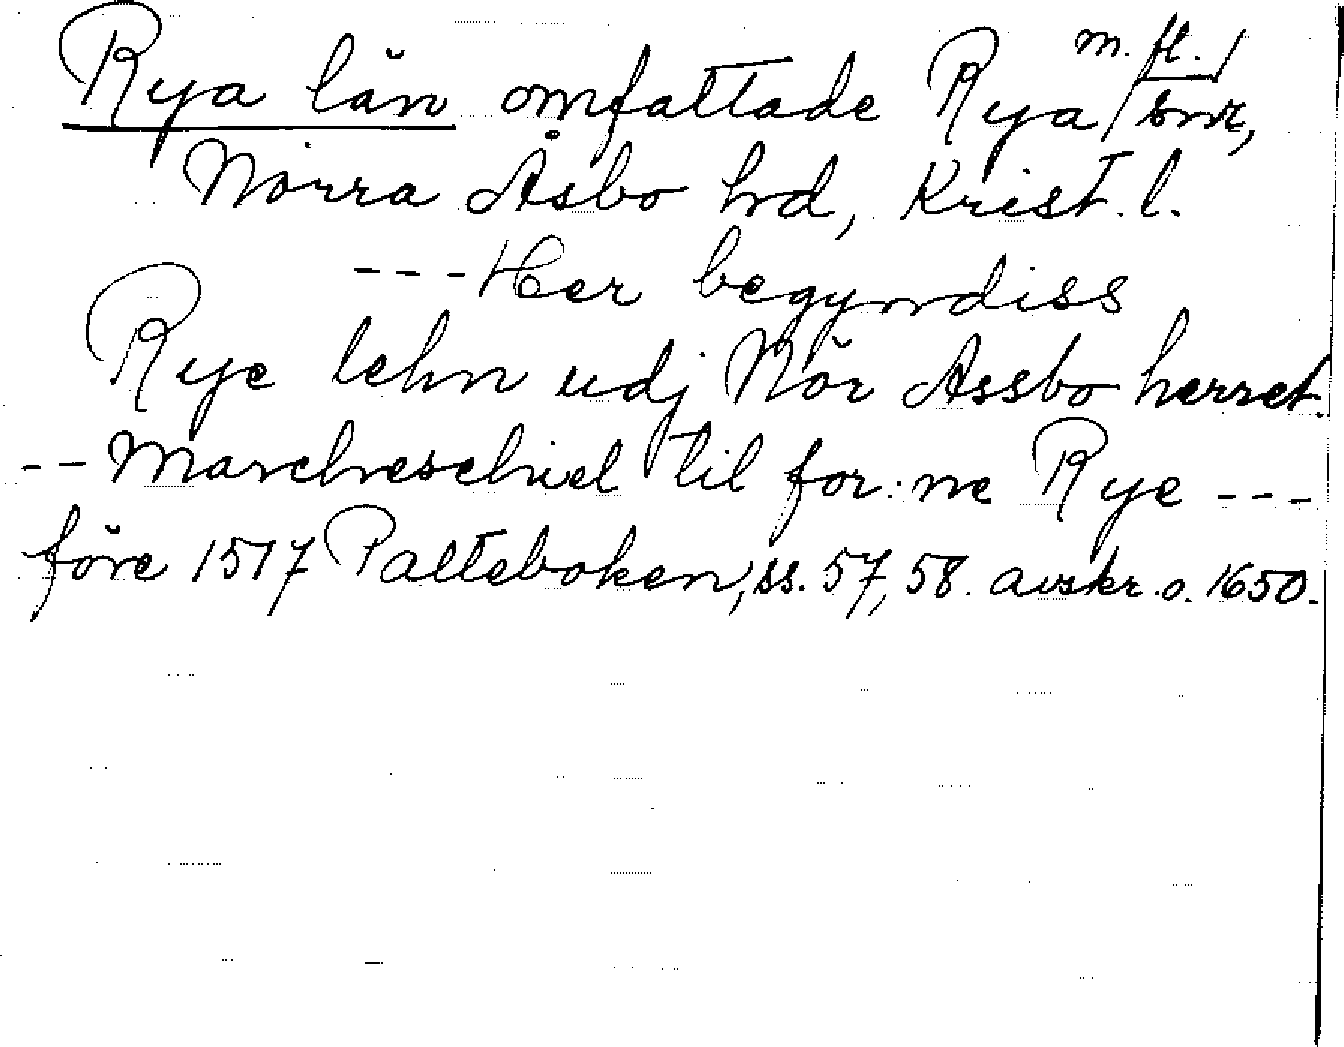 Rya län omfattade Rya m. fl. snr,
Norra Åsbo hd, Krist. l.
--- Her begyndiss
Rye lehn udj Nör Assbo herret.
-- Marchreschiel til for:ne Rye ---
före 1517 Palteboken, ss. 57, 58. avskr. o. 1650.